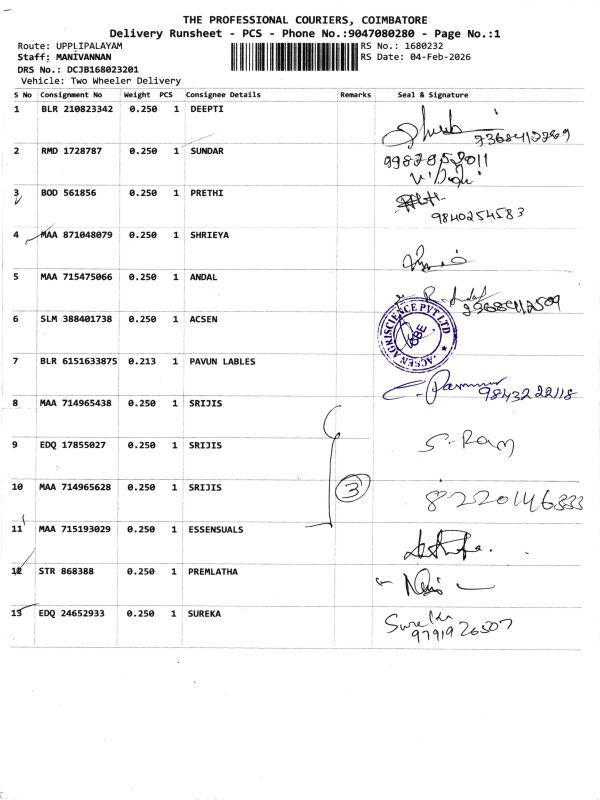 THE PROFESSIONAL COURIERS, COIMBATORE
Delivery Runsheet - PCS - Phone No.:9047080280 - Page No.:1
Route: UPPLIPALAYAM RS No.: 1680232
Staff: MANIVANNAN RS Date: 04-Feb-2026
DRS No.: DCJB168023201
Vehicle: Two Wheeler Delivery
S No Consignment No Weight PCS Consignee Details Remarks Seal & Signature
1 BLR 210823342 0.250 1 DEEPTI
2 RMD 1728787 0.250 1 SUNDAR
3 BOD 561856 0.250 1 PRETHI
9840254583
4 MAA 871048079 0.250 1 SHRIEYA
5 MAA 715475066 0.250 1 ANDAL
6 SLM 388401738 0.250 1 ACSEN
ACSEN AGRISCIENCE PVT LTD
CBE
7 BLR 6151633875 0.213 1 PAVUN LABLES
9843222118
8 MAA 714965438 0.250 1 SRIJIS
9 EDQ 17855027 0.250 1 SRIJIS S. Ram
10 MAA 714965628 0.250 1 SRIJIS 3 8220146333
11 MAA 715193029 0.250 1 ESSENSUALS
12 STR 868388 0.250 1 PREMLATHA
13 EDQ 24652933 0.250 1 SUREKA Sureka
9791926507